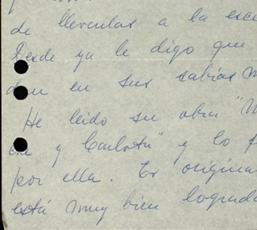 de llevarlas a la esce
Desde ya le digo que
den en sus sabias m
He leido su obra "M
y Carlota" y lo f
por ella. Es origina
está muy bien lograda